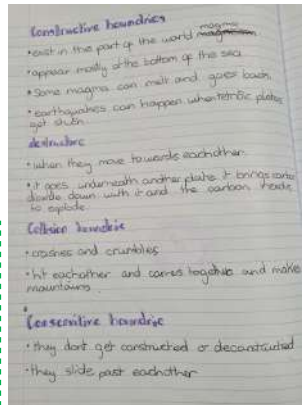 Constructive boundries
magma
• exist in the part of the world
• appear mostly at the bottom of the sea
• Some magma can melt and goes back
• earthquakes can happen when tetnic plates
get stuck
destructive
• when they move towards eachother
• it goes underneath another plate it brings carbo
dioxide down with it and the carbon
to explode
Collision boundrie
• crashes and crumbles
• hit eachother and comes together and makes
mountains
Conservitive boundrie
• they dont get constructed or deconstructed
• they slide past eachother